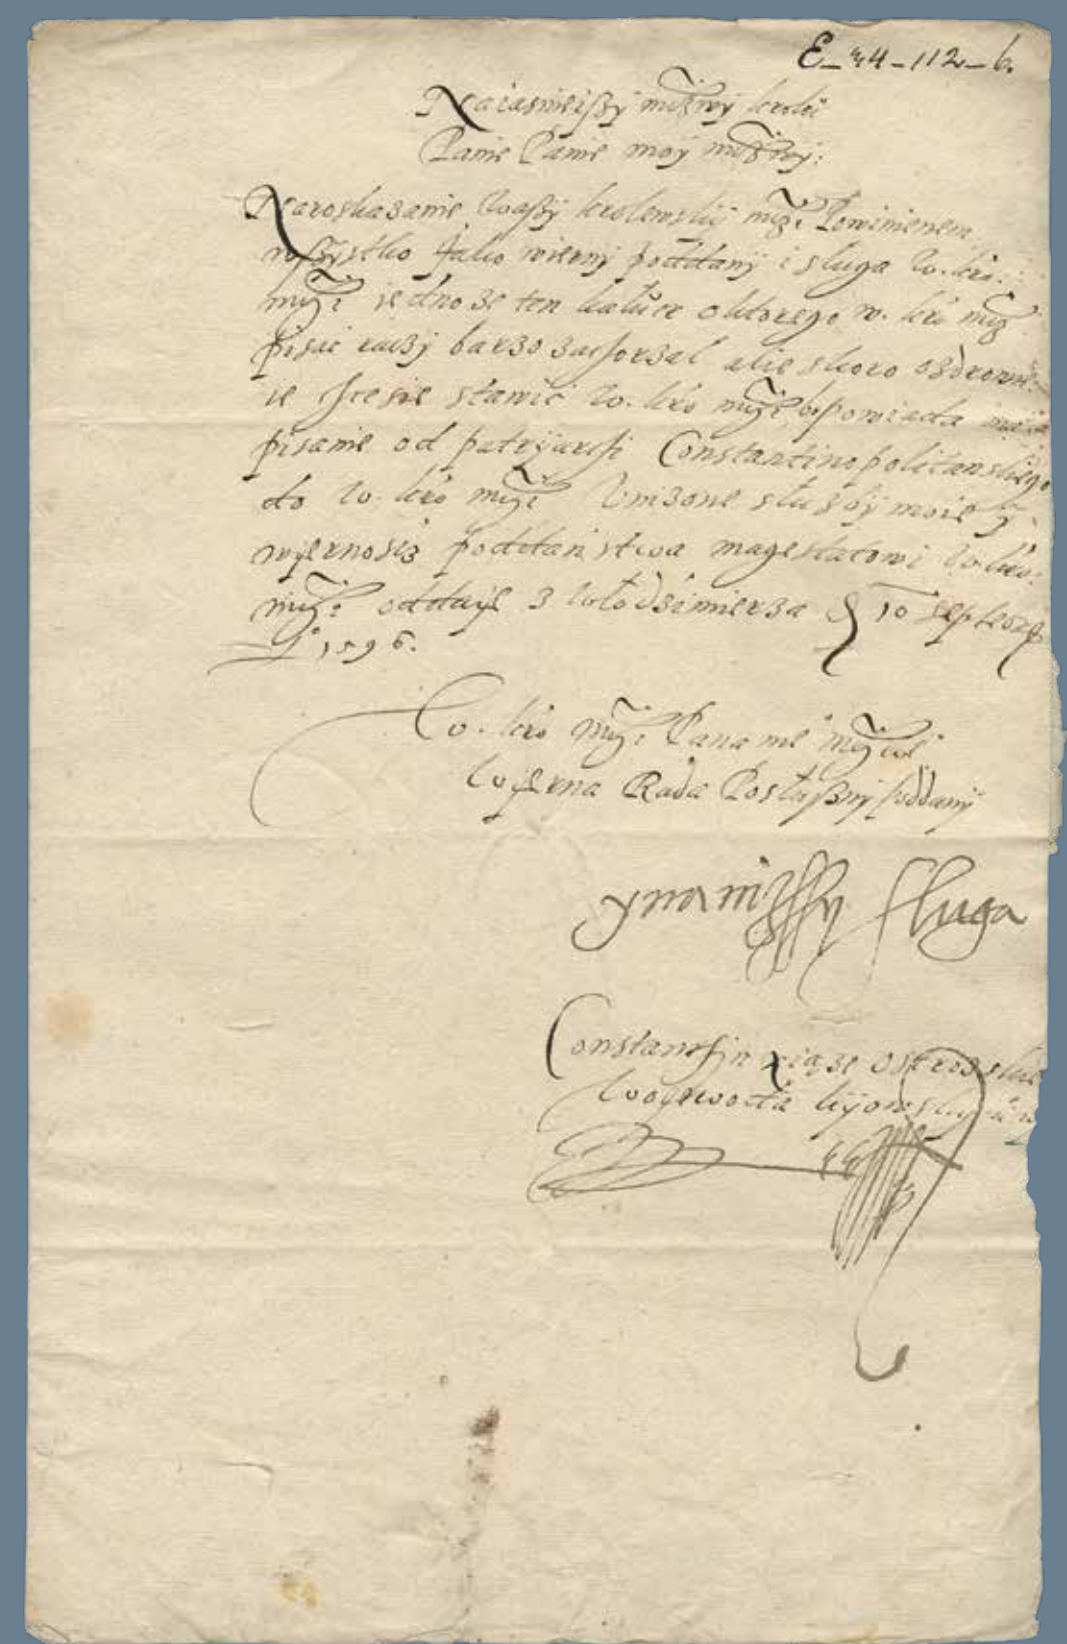 E–34–112–6.
Naiasnieiszy miłzwy krolu
Panie Panie moy miłzwy:
Naroskazanie Waszy krolewskij mczi Powinienem
wszystko Jako wierny poddany i sluga W. kro:
mczi iedno ze ten ktorego w. kro mcz
pisac raczy barzo zachorzal alie skoro ozdrowie
ie chce sie stawic W. kro mczi powiada
pisanie od patryarchi Constantinopolitanskiego
do W. kro mczi Vnizone sluzby moie y
wyernoscz poddanstwa magestatowi W. kro:
mczi oddaye z Wlodzimierza 10 septebra
1596.
W. kro mczi Pana me° mczwe°
Wyerna Rada Posluszny poddany
y nanizssy sluga
Constantyn xiąze ostrozskie
Woyewoda kyowsky